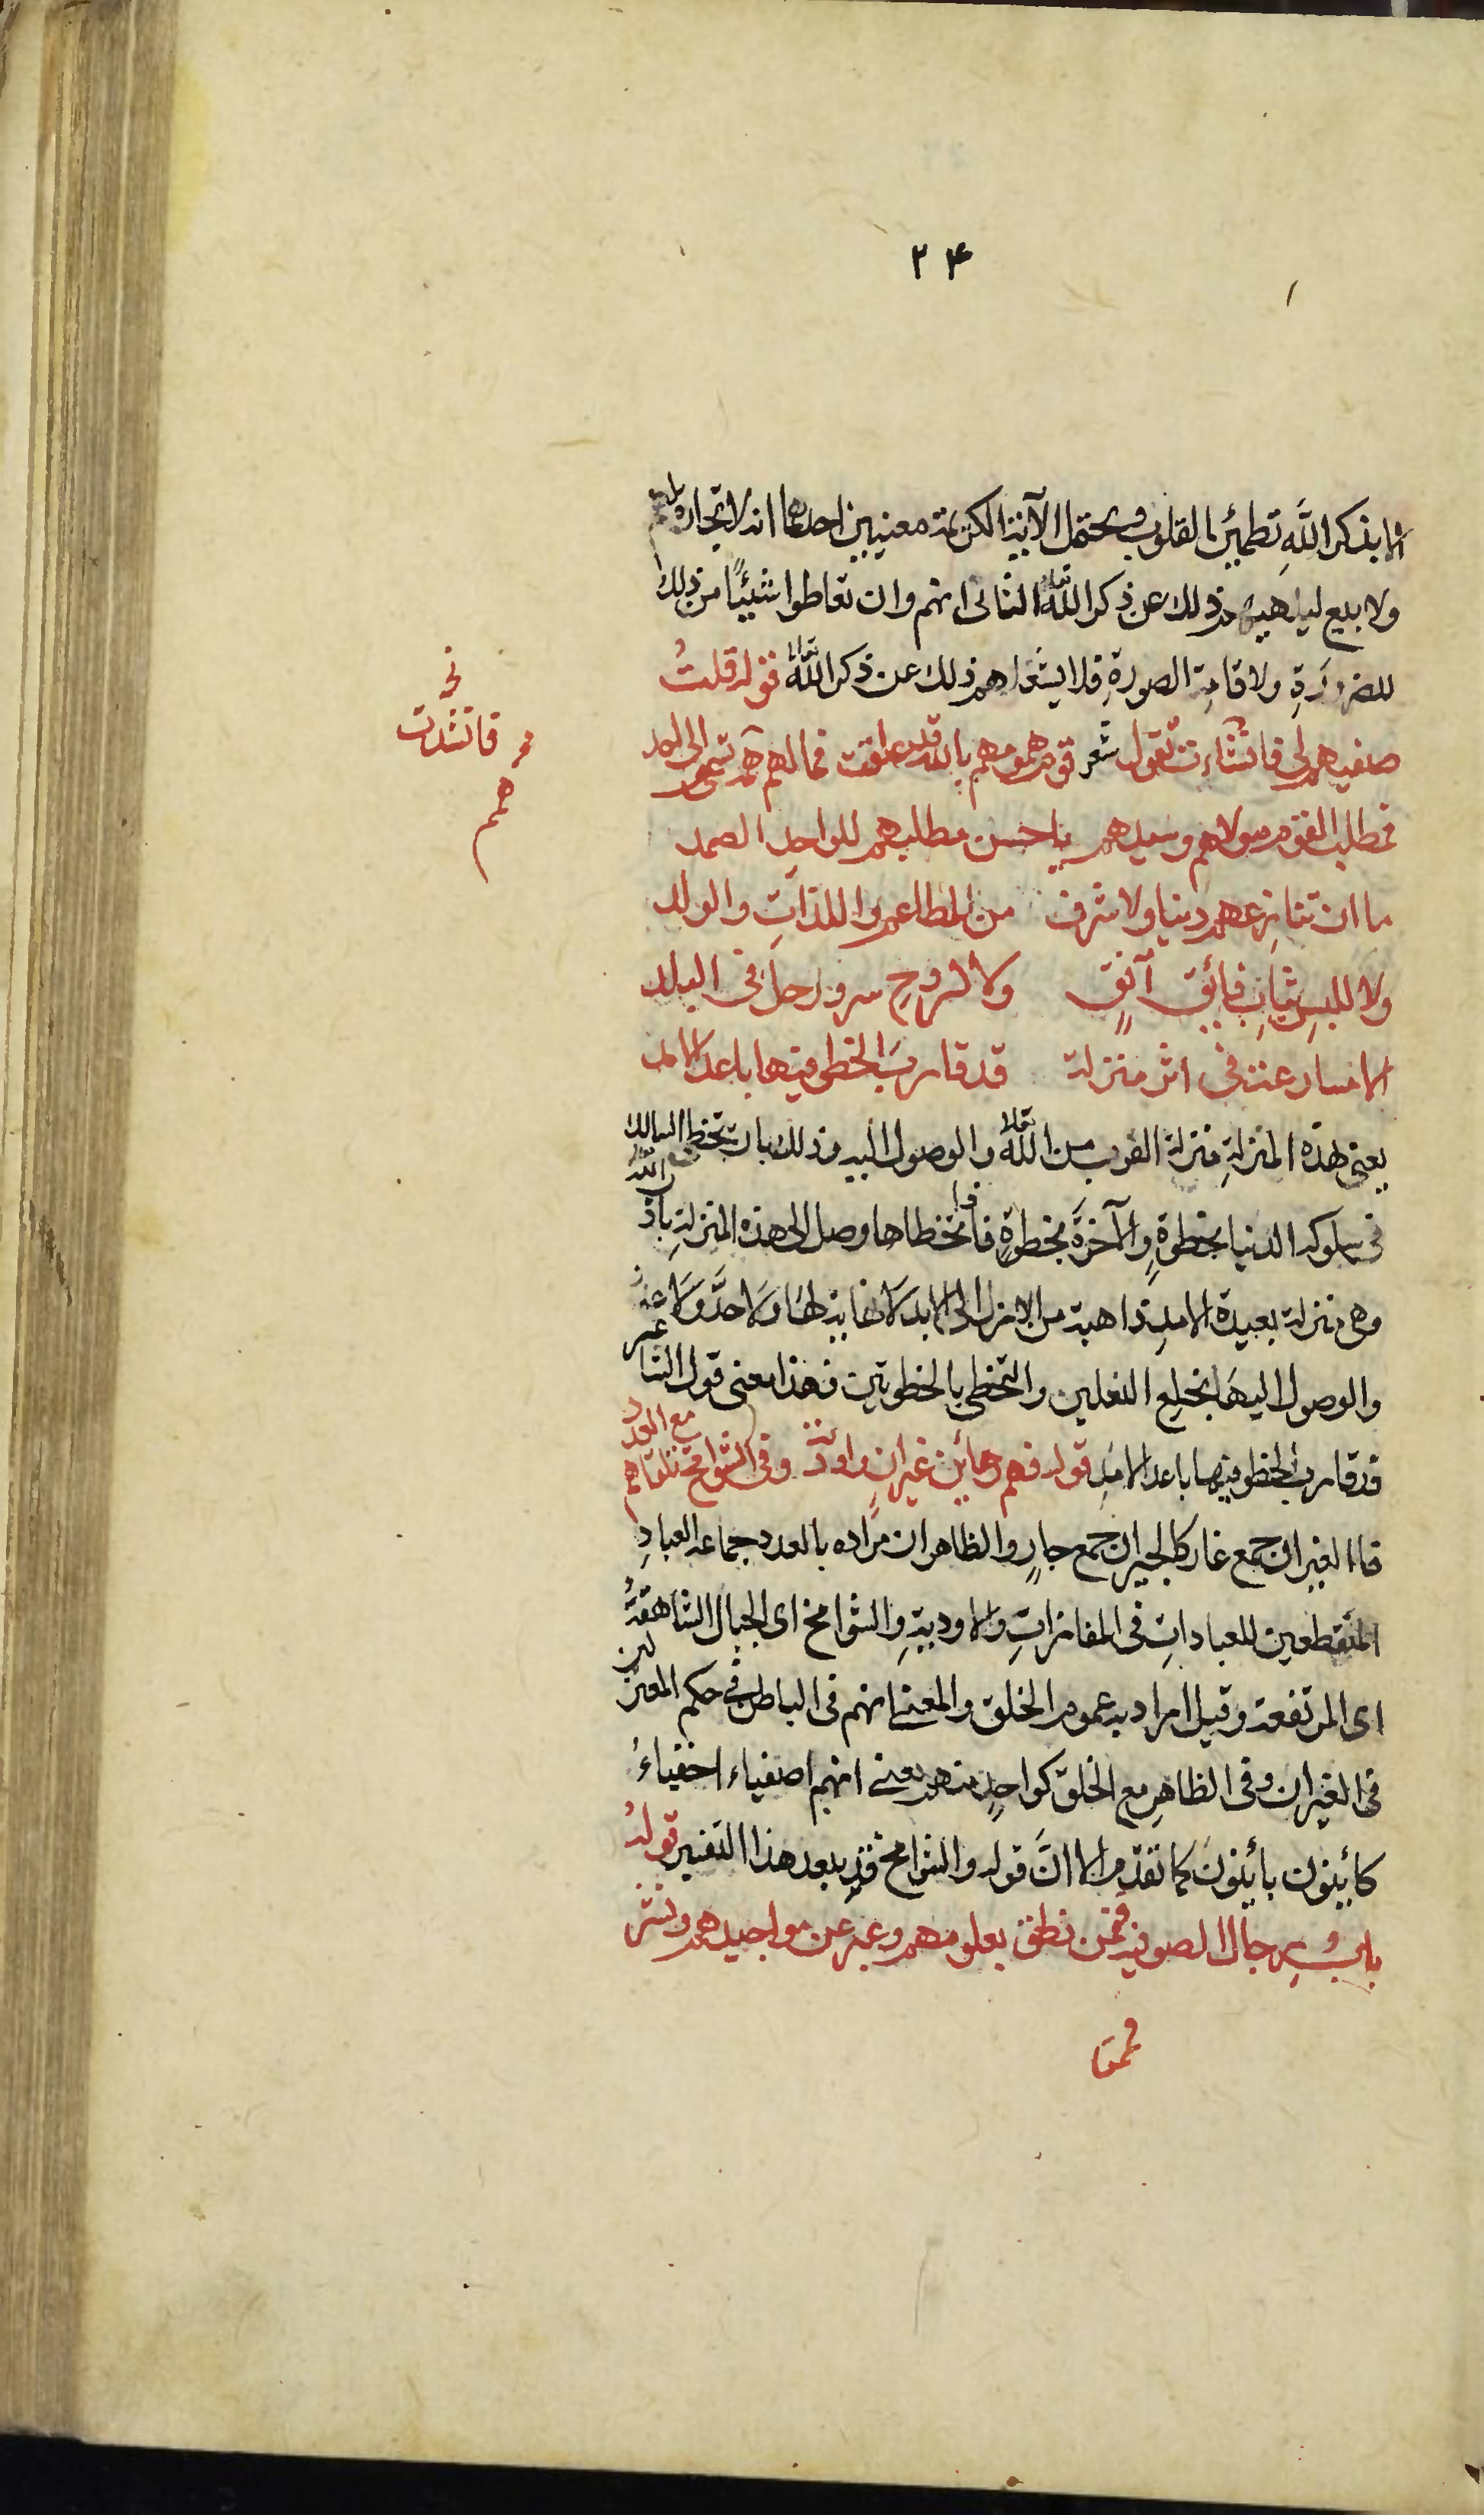 ٢۴
الا بذكر اللَّهِ تطمئن القلوب ويحتمل الآية الكريمة معنيين احدهما انه لا تجارة لهم
ولا بيع ليلهيهم ذلك عن ذكر اللّه تعالى الثانى انهم وان تعاطوا شيئًا من ذلك
للضرورَةِ ولاقامةِ الصورةِ فلا يشغلهم ذلك عن ذكر اللّه تعالى قوله قلتُ
صفيهم لى فانشاءت تقول شعر قوم همومهم بالله قد علقت فما لهم همم تسموا الى احد
فمطلب القوم مولاهم وسيدهم يا حسن مطلبهم للواحد الصمد
ما ان تنازعهم دنيا ولا شرف من المطاعم واللذاتِ والولد
ولا للبسِ ثيابٍ فائق آنقٍ ولا لروحِ سرور حل فى البلد
الا مسارعة فى اثر منزلة قد قارب الخطى فيها باعد الامد
يعنى بهذه المنزلةِ منزلة القرب من اللّه تعالى والوصول اليه وذلك بان يتخطى السالك
فى سلوكه الدنيا بخطوةٍ والآخرَة بخطوةٍ فاذا تخطاها وصل الى هذه المنزلةِ باذن اللّه
وهى منزلة بعيدة الامدِ ذاهبة من الازل الى الابد لا نهاية لها ولا حدَّ ولا
والوصول اليهَا بخلع النعلين والتخطى بالخطوتين فهذا معنى قول الشاعر
قد قارب الخطو فيها باعد الامَدِ قوله فهم رهائن غيرانٍ واودية وفى الشوامخ تلقاهم مع العدد
قال الغيران جمع غار كالجيران جمع جارٍ والظاهر ان مرَاده بالعدد جماعة العبادِ
المنقطعين للعباداتِ فى المفازاتِ والاوديةِ والشوامخ اى الجبال الشاهقةُ
اى المرتفعة وقيل اراد به عموم الخلق والمعنى انهم فى الباطن فى حكم المعتزلين
فى الغيران وفى الظاهرِ مع الخلق كواحدٍ منهم يعنى انهم اصفياء اخفياءُ
كائنون بائنون كما تقدّم الا انَّ قوله والشوامخ قد يبعد هذا التفسير قولهُ
بابُ رجال الصوفية فممن نطق بعلومهم وعبر عن مواجيدهم ونشر
فممن
خ
فانشدت
همم